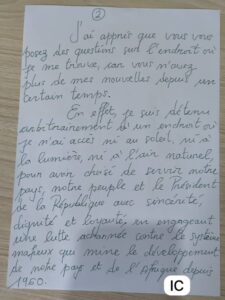 ②
J'ai appris que vous vous
posez des questions sur l'endroit où
je me trouve, car vous n'avez
plus de mes nouvelles depuis un
certain temps.
En effet, je suis détenu
arbitrairement à un endroit où
je n'ai accès ni au soleil, ni à
la lumière, ni à l'air naturel,
pour avoir choisi de servir notre
pays, notre peuple et le Président
de la République avec sincérité,
dignité et loyauté, en engageant
une lutte acharnée contre le système
mafieux qui mine le développement
de notre pays et de l'Afrique depuis
1960.
IC